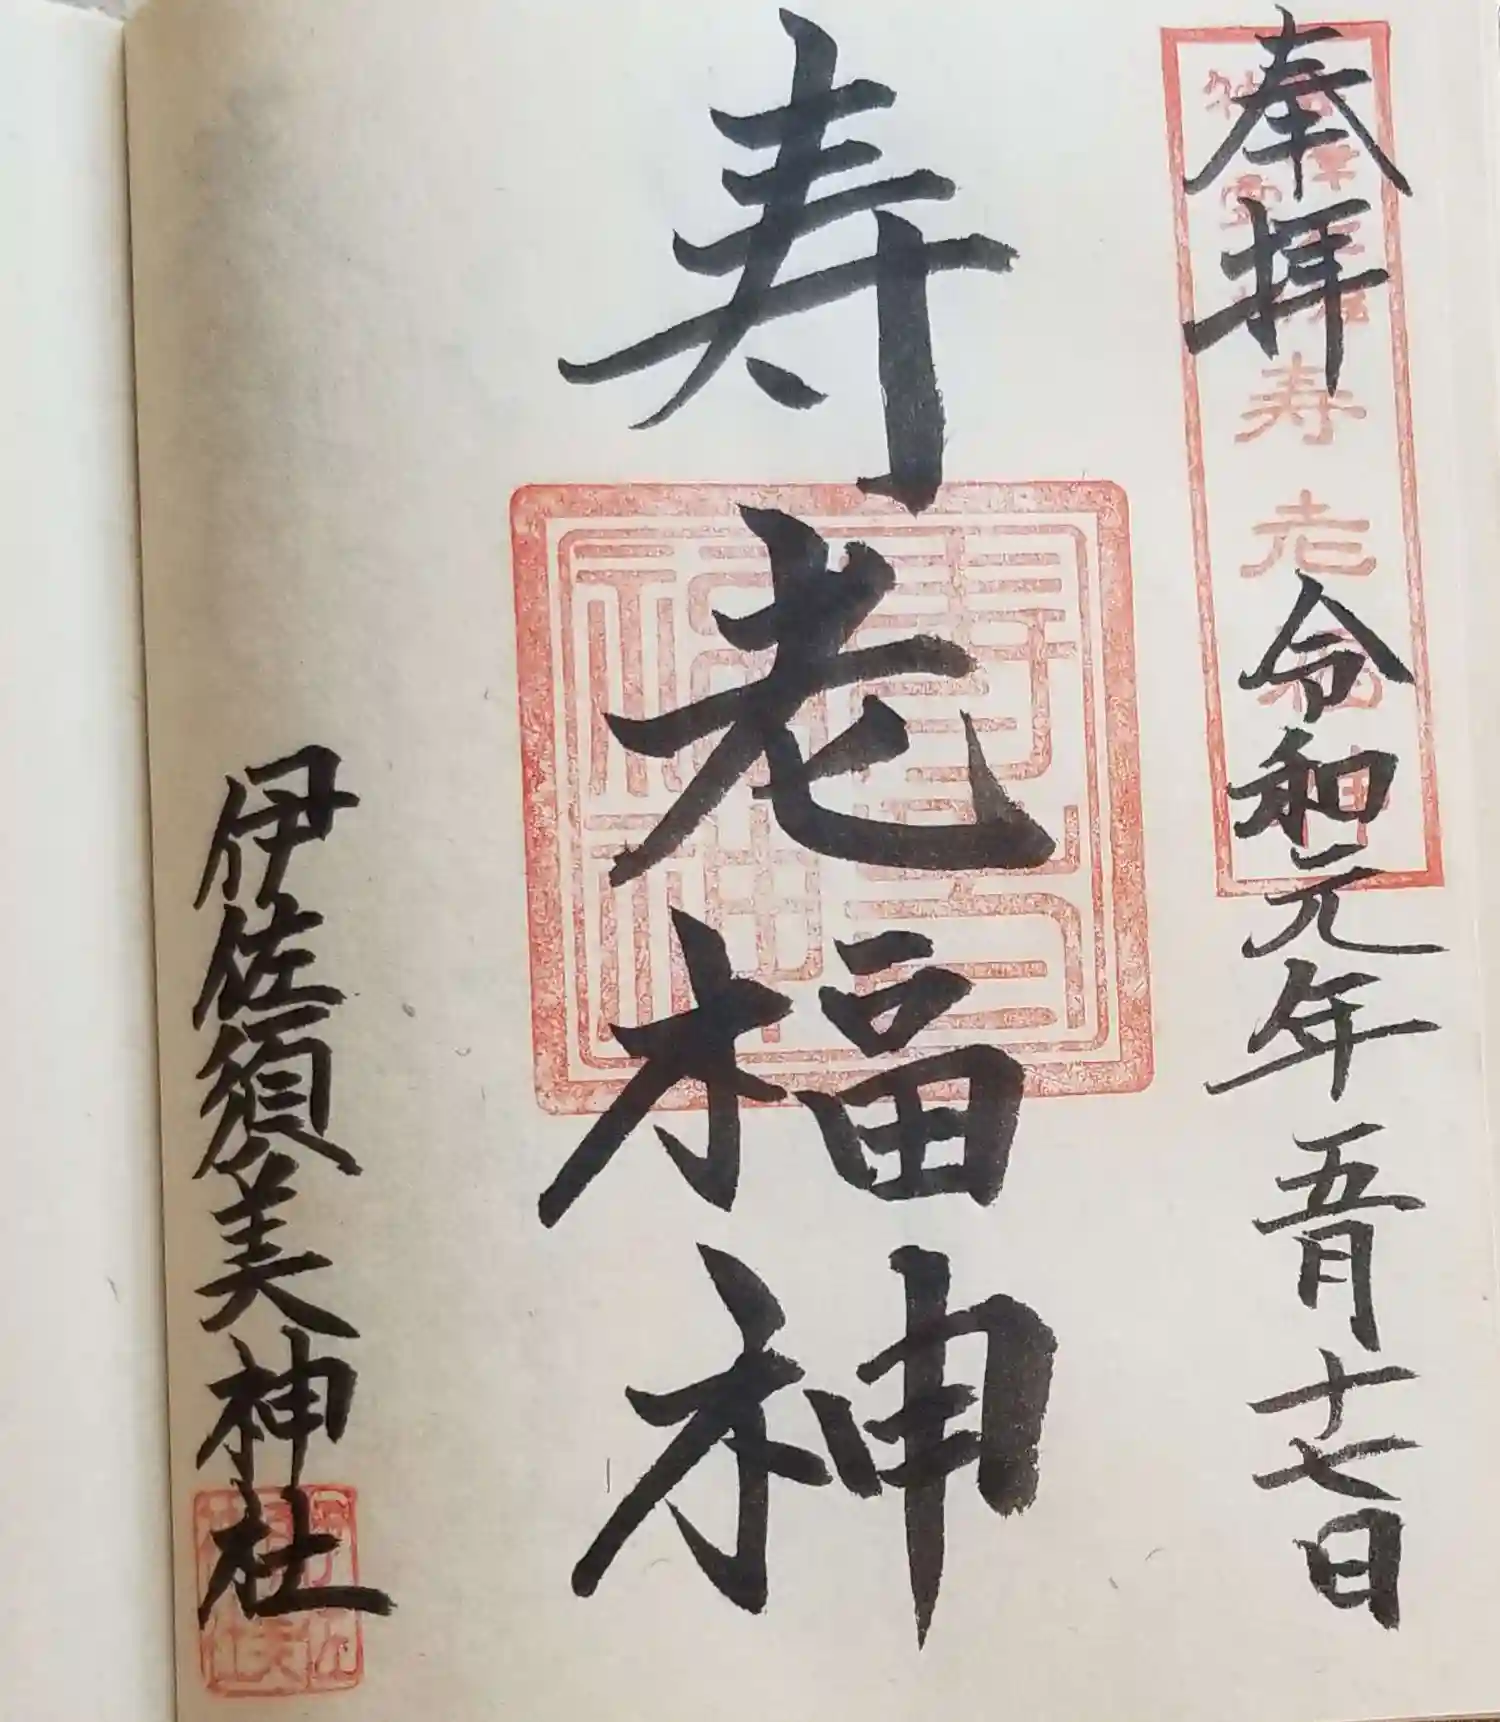 奉拝
令和元年五月十七日
寿老福神
伊佐須美神社
寿老